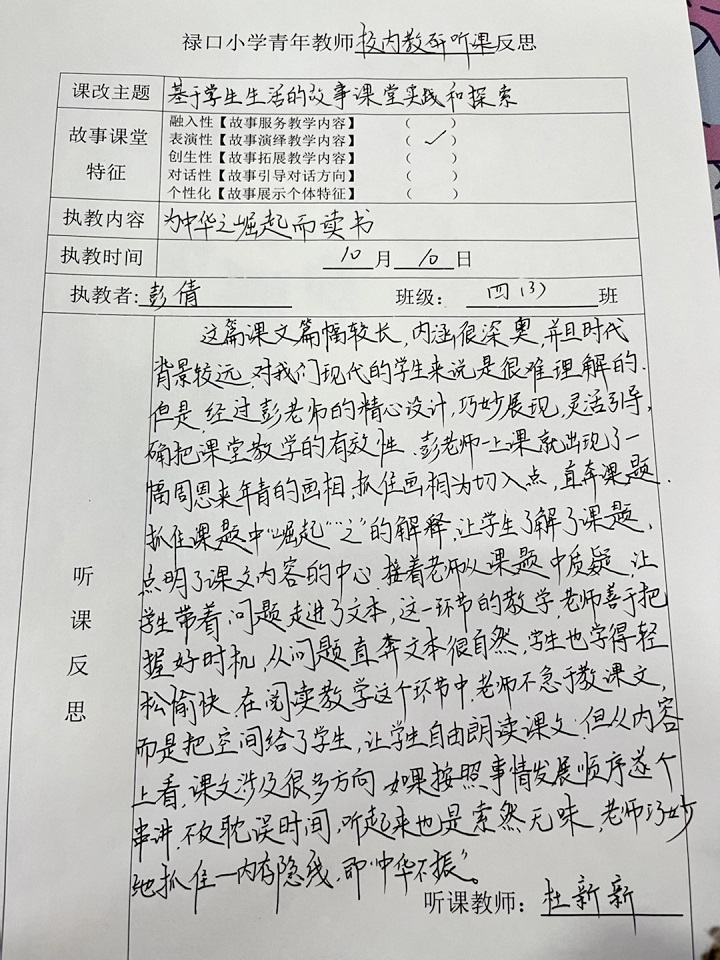 禄口小学青年教师校内教研听课反思
课改主题 基于学生生活的故事课堂实践和探索
故事课堂特征
融入性【故事服务教学内容】 （ ）
表演性【故事演绎教学内容】 （ ✓ ）
创生性【故事拓展教学内容】 （ ）
对话性【故事引导对话方向】 （ ）
个性化【故事展示个体特征】 （ ）
执教内容 为中华之崛起而读书
执教时间 10月10日
执教者：彭倩 班级：四（3）班
听课反思
这篇课文篇幅较长，内涵很深奥，并且时代
背景较远，对我们现代的学生来说是很难理解的.
但是，经过彭老师的精心设计，巧妙展现，灵活引导，
确把课堂教学的有效性.彭老师一上课就出现了一
幅周恩来年青的画相，抓住画相为切入点，直奔课题.
抓住课题中“崛起”“之”的解释，让学生了解了课题，
点明了课文内容的中心.接着老师从课题中质疑，让
学生带着问题走进了文本，这一环节的教学，老师善于把
握好时机，从问题直奔文本很自然，学生也学得轻
松愉快.在阅读教学这个环节中，老师不急于教课文，
而是把空间给了学生，让学生自由朗读课文.但从内容
上看，课文涉及很多方向.如果按照事情发展顺序逐个
串讲，不仅耽误时间，听起来也是索然无味，老师巧妙
地抓住一内在隐线，即“中华不振”。
听课教师：杜新新